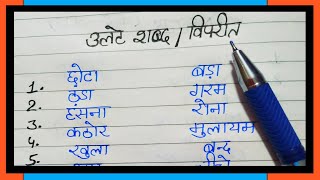 उलटे शब्द / विपरीत
1. छोटा बड़ा
2. ठंडा गरम
3. हंसना रोना
4. कठोर मुलायम
5. खुला बन्द